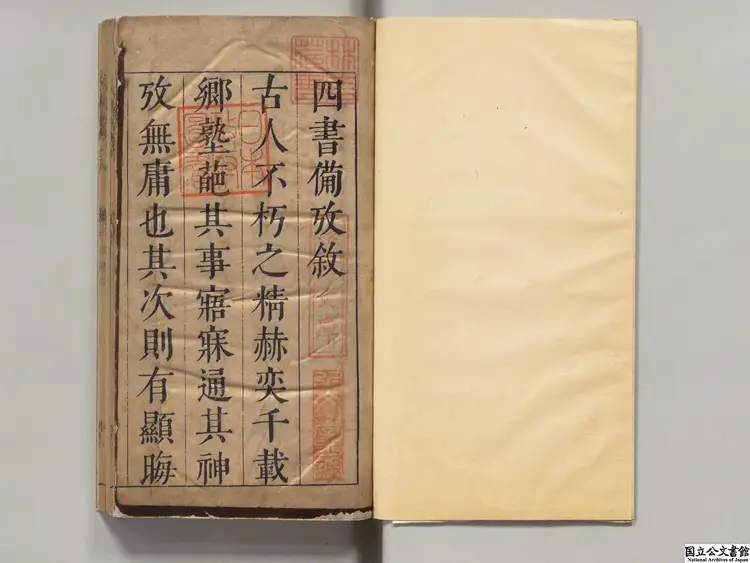 四書備攷敘
古人不朽之精赫奕千載
鄉塾葩其事寤寐通其神
攷無庸也其次則有顯晦
日本
国立公文書館
National Archives of Japan